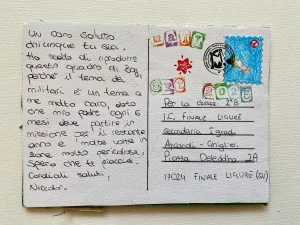 Un caro saluto
chiunque tu sia.
Ho scelto di riprodurre
questo quadro di
perché il tema dei
militari è un tema a
me molto caro, dato
che mio padre ogni 6
mesi deve partire in
missione per il restante
anno e molte volte in
zone molto pericolose.
Spero che ti piaccia.
Cordiali saluti,
Niccolò.
MAIL
ART
2025
Per la classe 2ªB
I.C. FINALE LIGURE
Secondaria I grado
Aicardi - Ghiglieri
Piazza 2A
17024 FINALE LIGURE (SV)